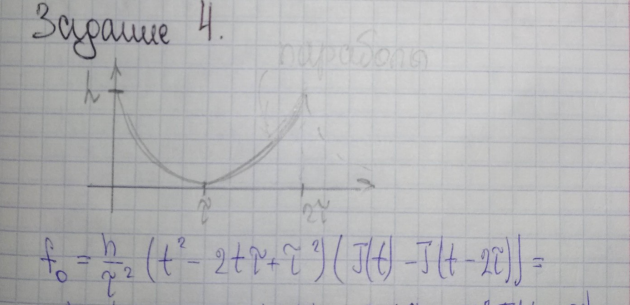 Задание 4.
параболы
h
τ 2τ
f₀ = h/τ² (t² - 2tτ + τ²) (J(t) - J(t - 2τ)) =